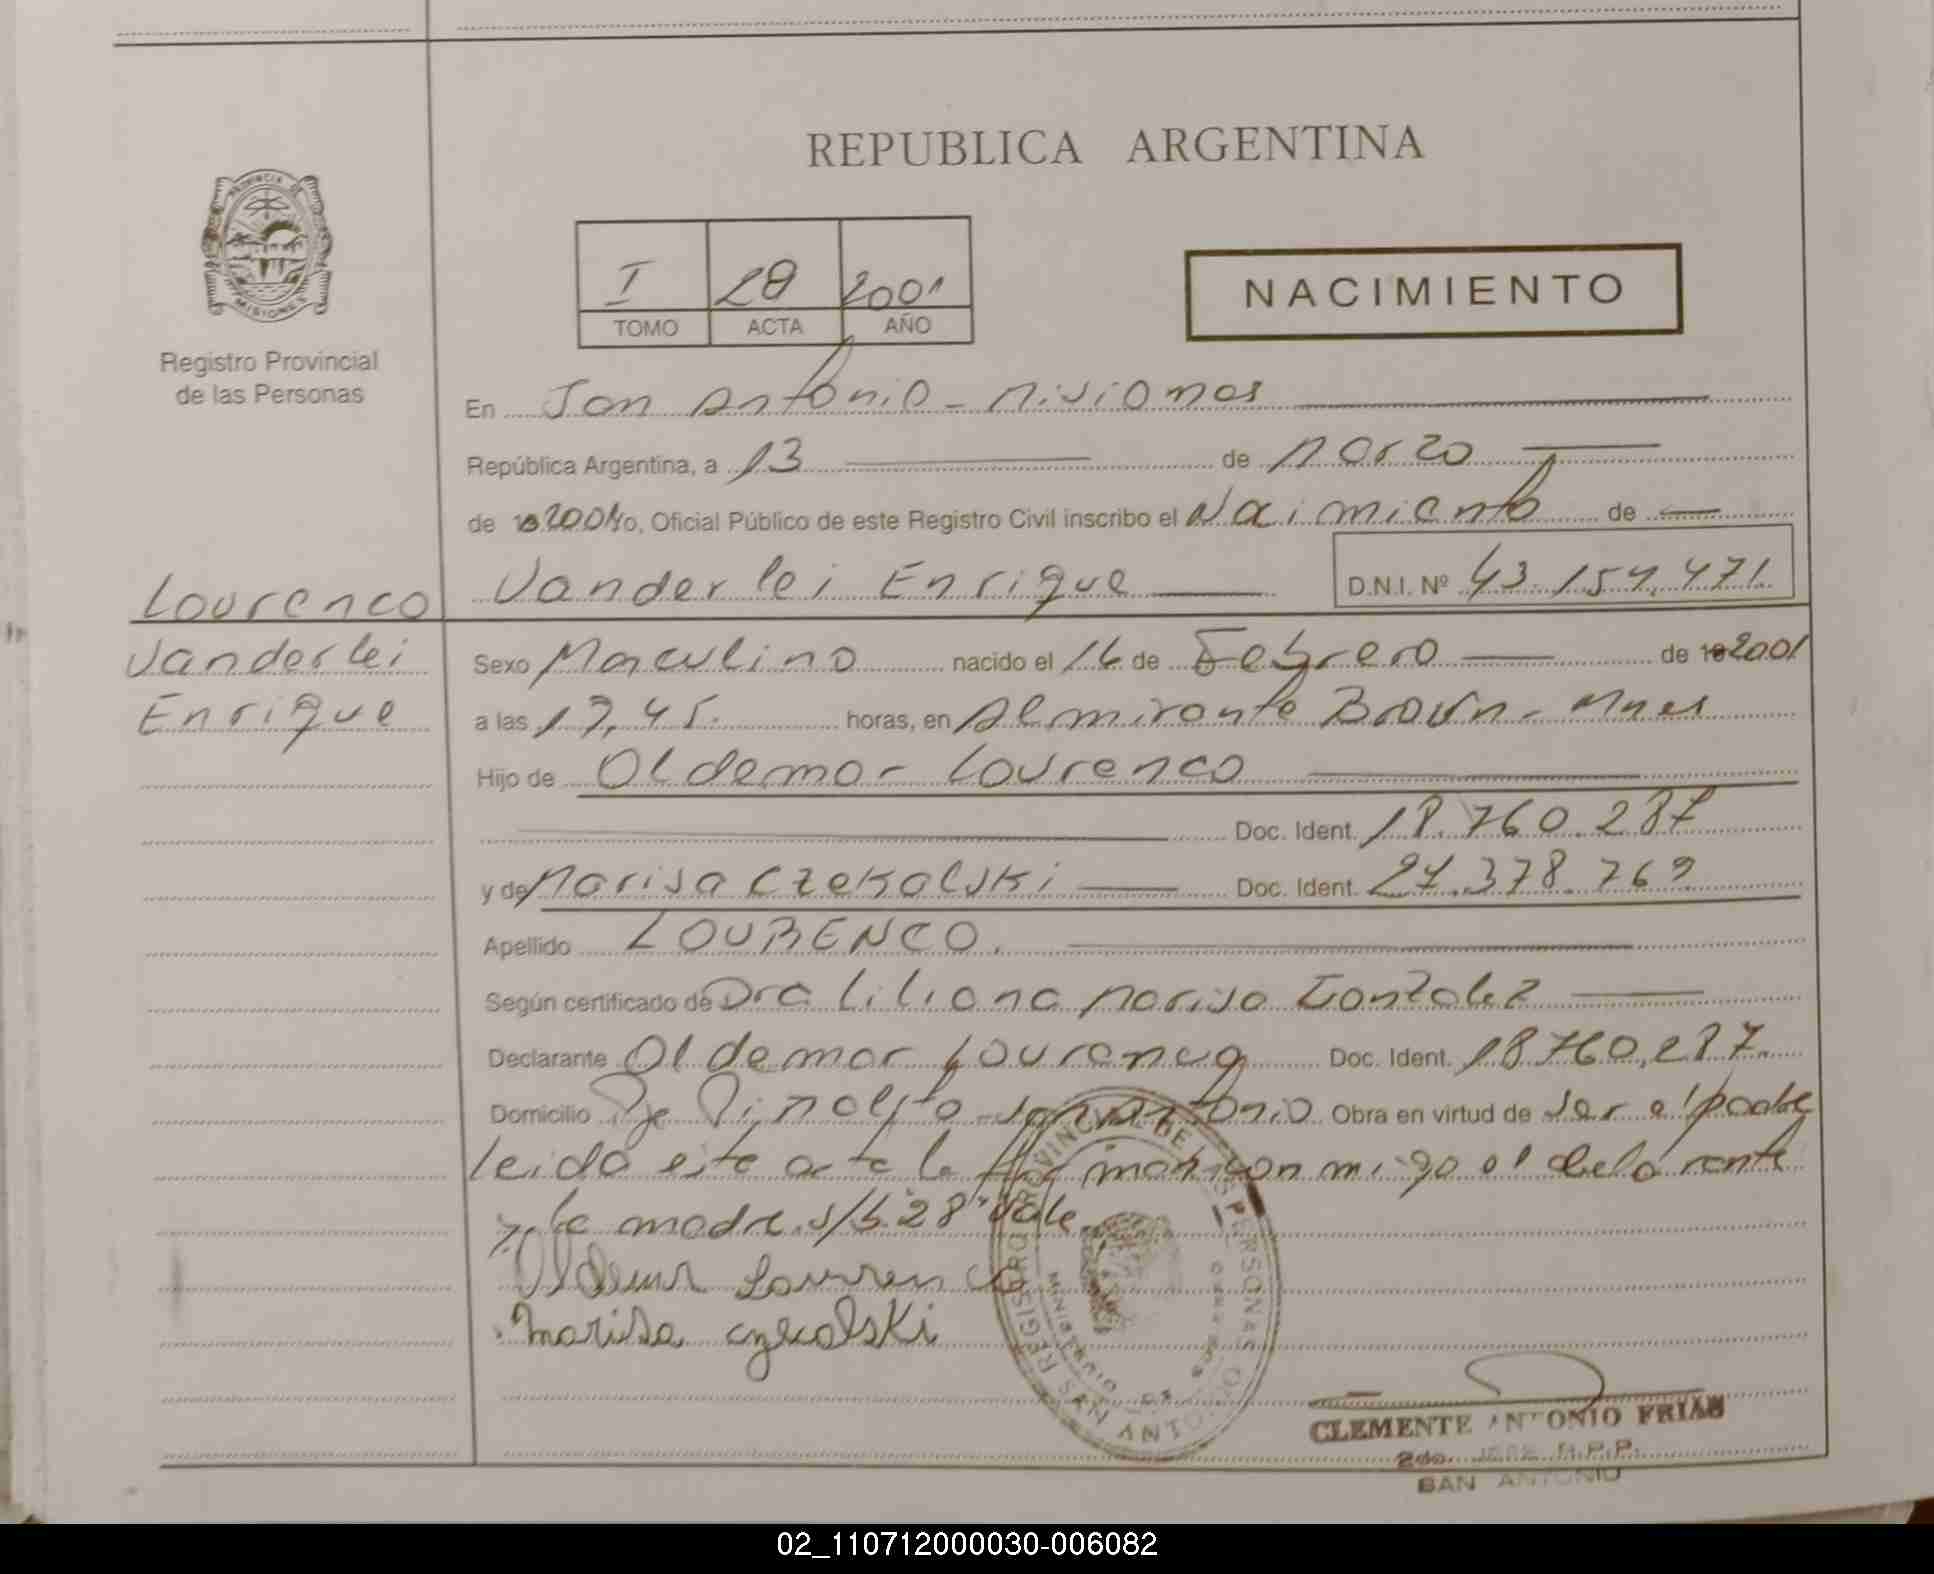 REPUBLICA ARGENTINA
PROVINCIA DE
MISIONES
Registro Provincial
de las Personas
I 28 2001
TOMO ACTA AÑO
NACIMIENTO
En San Antonio - Misiones
República Argentina, a 13 de Marzo
de 2001 Yo, Oficial Público de este Registro Civil inscribo el Nacimiento de
Vanderlei Enrique D.N.I. Nº 43.154.471
Lourenco
Vanderlei
Enrique
Sexo Masculino nacido el 16 de Febrero de 2001
a las 17,45. horas, en Almirante Brown - Mnes
Hijo de Oldemar Lourenco
Doc. Ident. 18.760.287
y de Marisa Czekalski Doc. Ident. 24.378.769
Apellido LOURENCO.
Según certificado de Dra Liliana Marisa Gonzalez
Declarante Oldemar Lourenco Doc. Ident. 18.760.287.
Domicilio Pje Pinalito San Antonio Obra en virtud de ser el padre
leida este acta la firman conmigo el declarante
y la madre. s/b. 28 "Vale
Oldemar Lourenco
Marisa Czekalski
REGISTRO PROVINCIAL DE LAS PERSONAS
SAN ANTONIO
MINISTERIO DE
CLEMENTE ANTONIO FRIAS
2do. R.P.P.
SAN ANTONIO
02_110712000030-006082